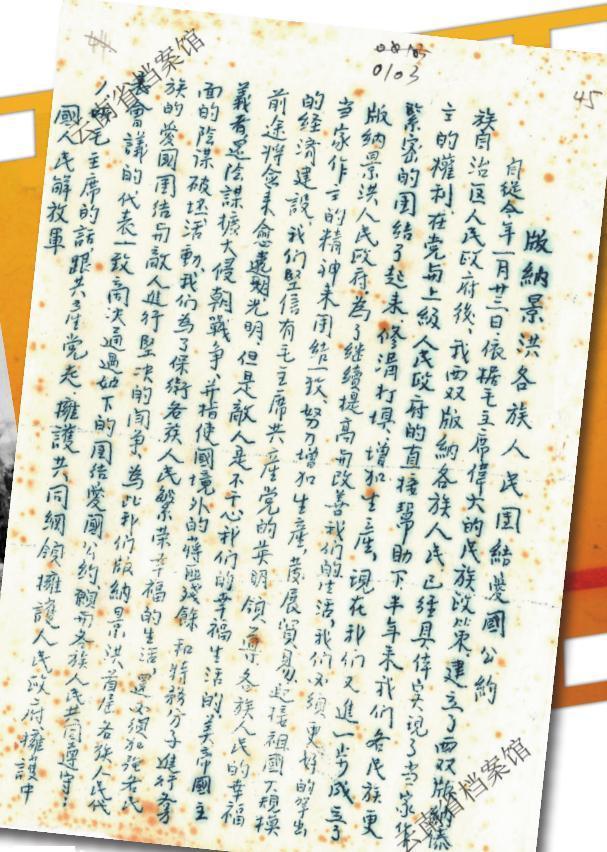 0103
45
云南省档案馆
版納景洪各族人民團結愛國公約
自從今年一月廿三日依据毛主席偉大的民族政策建立了西双版納傣
族自治区人民政府後，我西双版納各族人民已經具体实現了当家作
主的權利，在党与上級人民政府的直接幇助下半年来我們各民族更
緊密的團結了起来修溝打垻增加生産，現在我们又進一步成立了
版納景洪人民政府為了继續提高与改善我们的生活我们必須更好的拿出
当家作主的精神来团結一致，努力增加生産，發展貿易，迎接祖國大規模
的經済建設，我们堅信有毛主席共産党的英明領導各族人民的幸福
前途将愈来愈遠期光明，但是敵人是不干心我们的幸福生活的，美帝國主
義者还陰謀擴大侵朝戰争，并指使國境外的蔣匪残餘和特務分子進行各方
面的陰謀破坯活動，我们為了保衛各族人民繁荣幸福的生活，还必須加強各民
族的爱國团结与敵人進行堅决的闘争，為此我们版納景洪首届各族人民代
表會議的代表一致商决通過如下的团结爱國公约願与各族人民共同遵守：
1、听毛主席的話跟共産党走，擁護共同綱領，擁護人民政府擁護中
國人民解放軍
云南省档案馆